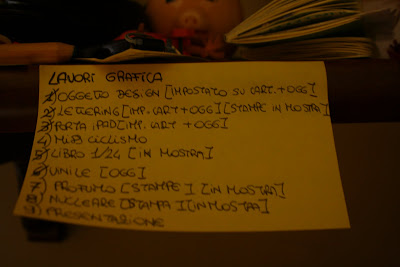 LAVORI GRAFICA
1) OGGETTO DESIGN [IMPOSTATO SU CART. + OGG]
2) LETTERING [IMP. CART + OGG] [STAMPE IN MOSTRA]
3) PORTA IPAD [IMP. CART + OGG]
4) MIB CICLISMO
5) LIBRO 1/24 [IN MOSTRA]
6) VINILE [OGG]
7) PROFUMO [STAMPE] [IN MOSTRA]
8) NUCLEARE [STAMPA] [IN MOSTRA]
9) PRESENTAZIONE